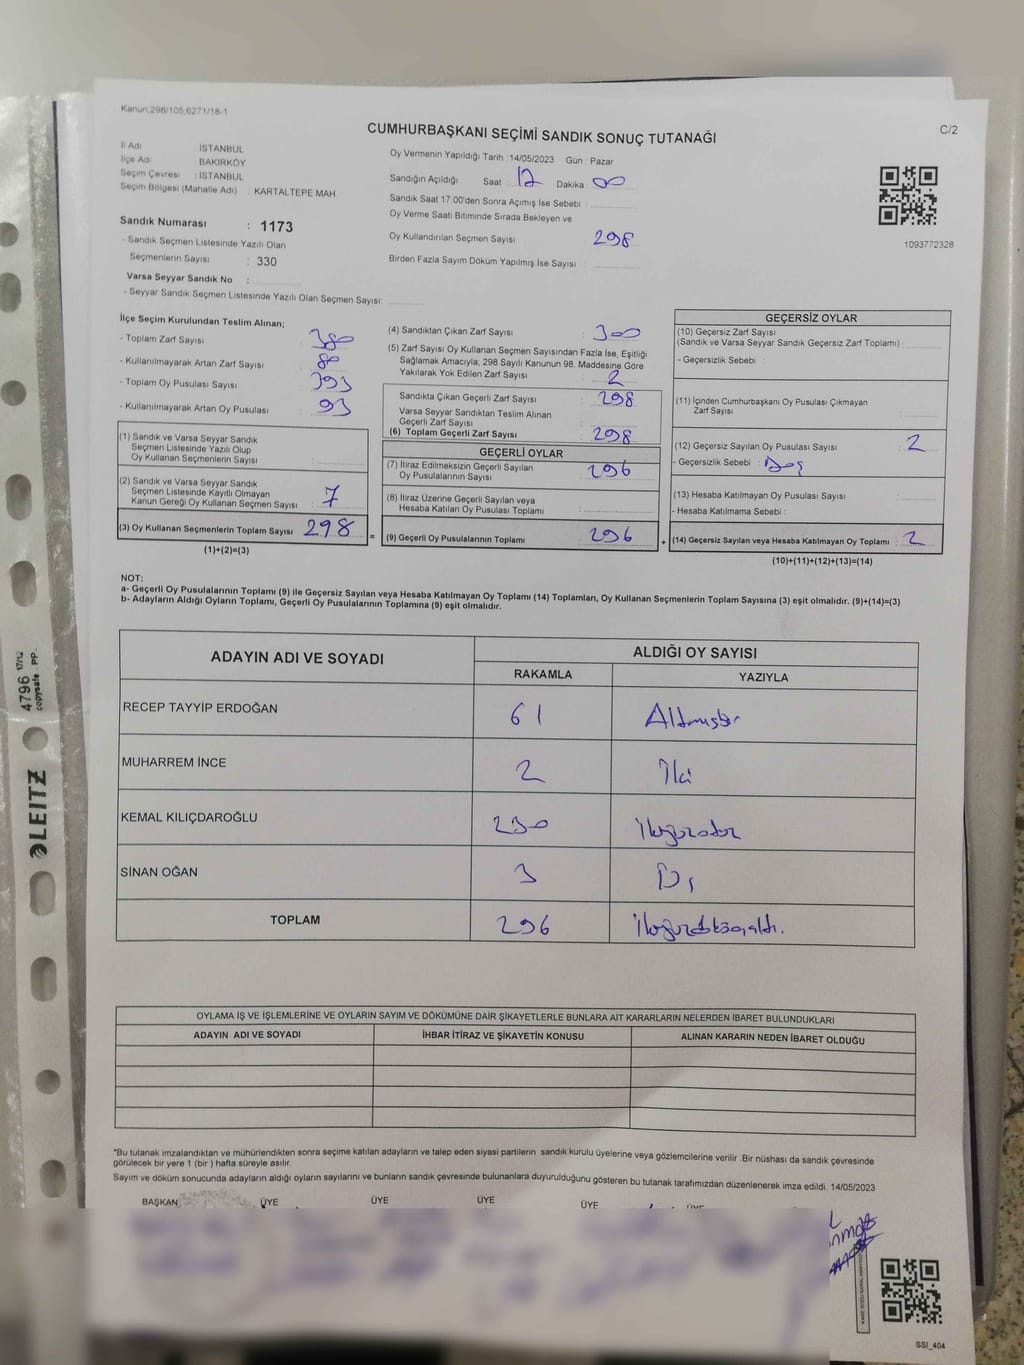 Kanun;298/105;6271/18-1
C/2
CUMHURBAŞKANI SEÇİMİ SANDIK SONUÇ TUTANAĞI
İl Adı İSTANBUL
İlçe Adı BAKIRKÖY
Seçim Çevresi : İSTANBUL
Seçim Bölgesi (Mahalle Adı) KARTALTEPE MAH.
Sandık Numarası : 1173
- Sandık Seçmen Listesinde Yazılı Olan
Seçmenlerin Sayısı : 330
Varsa Seyyar Sandık No :
- Seyyar Sandık Seçmen Listesinde Yazılı Olan Seçmen Sayısı:
Oy Vermenin Yapıldığı Tarih :14/05/2023 Gün : Pazar
Sandığın Açıldığı Saat : 17 Dakika : 00
Sandık Saat 17.00'den Sonra Açımış İse Sebebi :
Oy Verme Saati Bitiminde Sırada Bekleyen ve
Oy Kullandırılan Seçmen Sayısı : 298
Birden Fazla Sayım Döküm Yapılmış İse Sayısı :
1093772328
İlçe Seçim Kurulundan Teslim Alınan;
- Toplam Zarf Sayısı : 380
- Kullanılmayarak Artan Zarf Sayısı : 80
- Toplam Oy Pusulası Sayısı : 393
- Kullanılmayarak Artan Oy Pusulası : 93
(1) Sandık ve Varsa Seyyar Sandık
Seçmen Listesinde Yazılı Olup
Oy Kullanan Seçmenlerin Sayısı :
(2) Sandık ve Varsa Seyyar Sandık
Seçmen Listesinde Kayıtlı Olmayan
Kanun Gereği Oy Kullanan Seçmen Sayısı : 7
(3) Oy Kullanan Seçmenlerin Toplam Sayısı : 298
(1)+(2)=(3)
=
(4) Sandıktan Çıkan Zarf Sayısı : 300
(5) Zarf Sayısı Oy Kullanan Seçmen Sayısından Fazla İse, Eşitliği
Sağlamak Amacıyla; 298 Sayılı Kanunun 98. Maddesine Göre
Yakılarak Yok Edilen Zarf Sayısı : 2
Sandıkta Çıkan Geçerli Zarf Sayısı : 298
Varsa Seyyar Sandıktan Teslim Alınan
Geçerli Zarf Sayısı :
(6) Toplam Geçerli Zarf Sayısı : 298
GEÇERLİ OYLAR
(7) İtiraz Edilmeksizin Geçerli Sayılan
Oy Pusulalarının Sayısı : 296
(8) İtiraz Üzerine Geçerli Sayılan veya
Hesaba Katılan Oy Pusulası Toplamı :
(9) Geçerli Oy Pusulalarının Toplamı : 296
+
GEÇERSİZ OYLAR
(10) Geçersiz Zarf Sayısı
(Sandık ve Varsa Seyyar Sandık Geçersiz Zarf Toplamı) :
- Geçersizlik Sebebi :
(11) İçinden Cumhurbaşkanı Oy Pusulası Çıkmayan
Zarf Sayısı :
(12) Geçersiz Sayılan Oy Pusulası Sayısı : 2
- Geçersizlik Sebebi : Boş
(13) Hesaba Katılmayan Oy Pusulası Sayısı :
- Hesaba Katılmama Sebebi :
(14) Geçersiz Sayılan veya Hesaba Katılmayan Oy Toplamı : 2
(10)+(11)+(12)+(13)=(14)
NOT:
a- Geçerli Oy Pusulalarının Toplamı (9) ile Geçersiz Sayılan veya Hesaba Katılmayan Oy Toplamı (14) Toplamları, Oy Kullanan Seçmenlerin Toplam Sayısına (3) eşit olmalıdır. (9)+(14)=(3)
b- Adayların Aldığı Oyların Toplamı, Geçerli Oy Pusulalarının Toplamına (9) eşit olmalıdır.
ADAYIN ADI VE SOYADI ALDIĞI OY SAYISI
RAKAMLA YAZIYLA
RECEP TAYYİP ERDOĞAN 61 Altmışbir
MUHARREM İNCE 2 İki
KEMAL KILIÇDAROĞLU 230 ikiyüzotuz
SİNAN OĞAN 3 Üç
TOPLAM 296 ikiyüzdoksanaltı.
OYLAMA İŞ VE İŞLEMLERİNE VE OYLARIN SAYIM VE DÖKÜMÜNE DAİR ŞİKAYETLERLE BUNLARA AİT KARARLARIN NELERDEN İBARET BULUNDUKLARI
ADAYIN ADI VE SOYADI İHBAR İTİRAZ VE ŞİKAYETİN KONUSU ALINAN KARARIN NEDEN İBARET OLDUĞU
*Bu tutanak imzalandıktan ve mühürlendikten sonra seçime katılan adayların ve talep eden siyasi partilerin sandık kurulu üyelerine veya gözlemcilerine verilir .Bir nüshası da sandık çevresinde
görülecek bir yere 1 (bir ) hafta süreyle asılır.
Sayım ve döküm sonucunda adayların aldığı oyların sayılarını ve bunların sandık çevresinde bulunanlara duyurulduğunu gösteren bu tutanak tarafımızdan düzenlenerek imza edildi. 14/05/2023
BAŞKAN ÜYE ÜYE ÜYE ÜYE
SSI_404
LEITZ
4796 17/12
copysafe . PP.